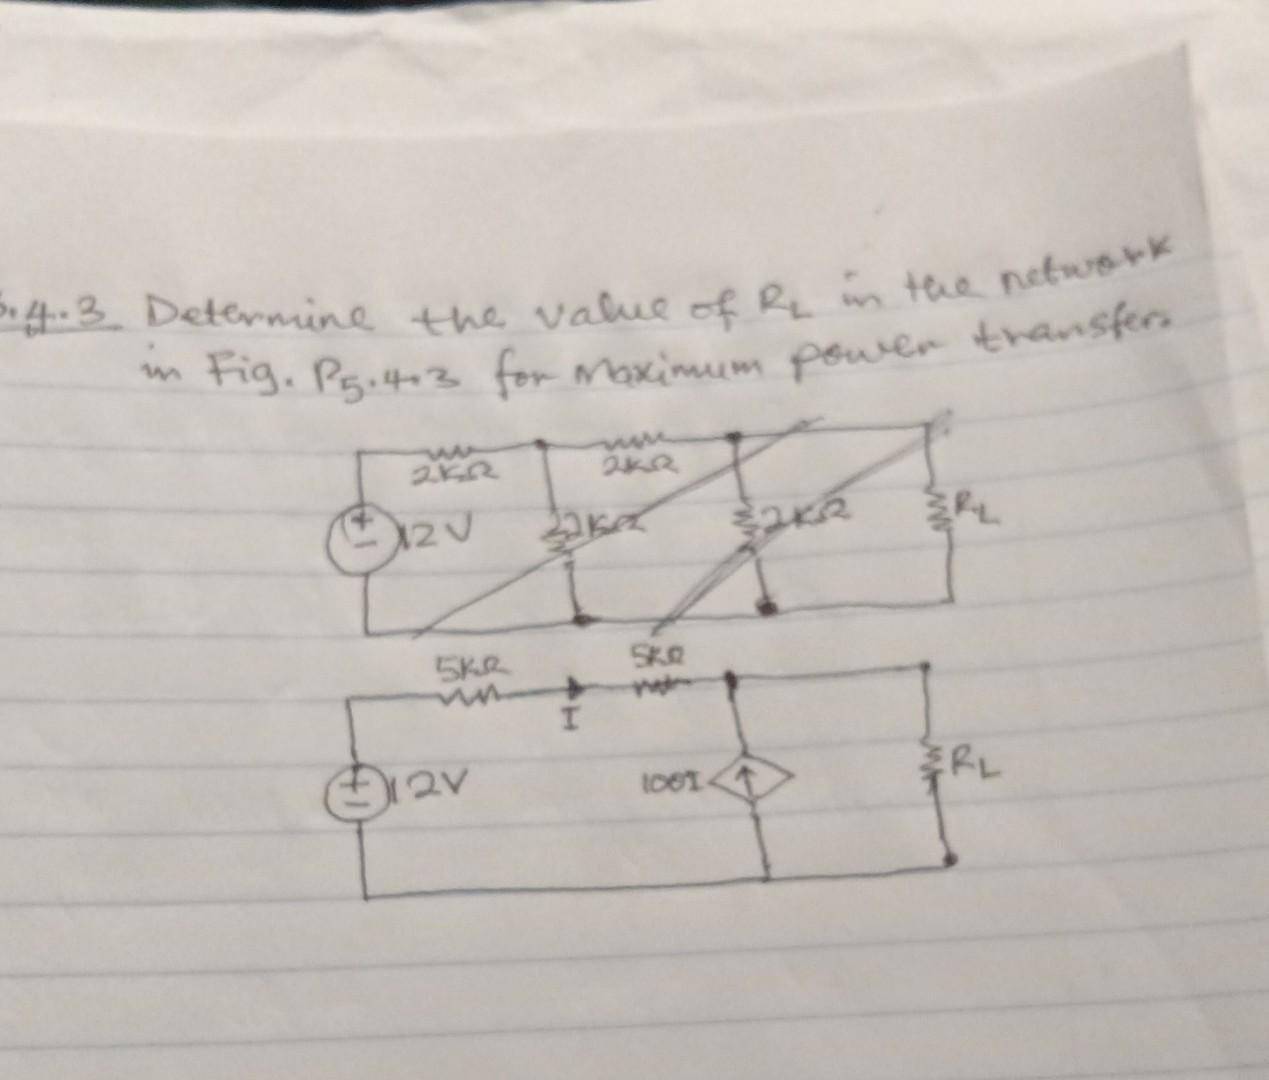 5.4.3 Determine the value of RL in the network
in Fig. P5.4.3 for maximum power transfer.
2KΩ 2KΩ
12V 2KΩ 2KΩ RL
5KΩ 5KΩ
I
12V 100I RL